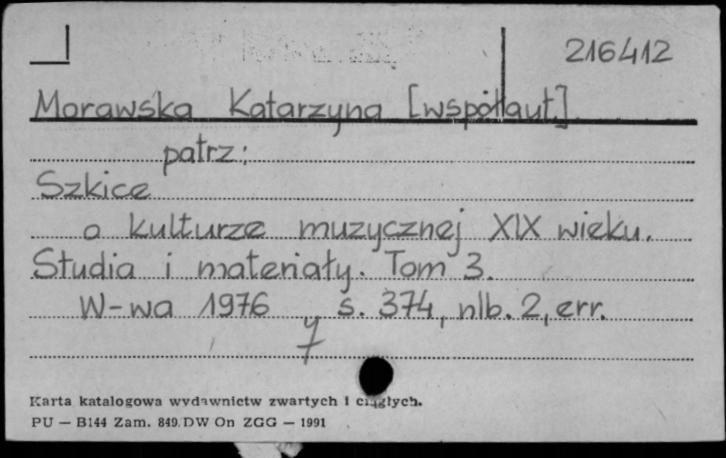 216412
Morawska Katarzyna [współaut.]
patrz:
Szkice
o kulturze muzycznej XIX wieku.
Studia i materiały. Tom 3.
W-wa 1976 s. 374, nlb. 2, err.
Karta katalogowa wydawnictw zwartych i ciągłych.
PU — B144 Zam. 849. DW On ZGG — 1991